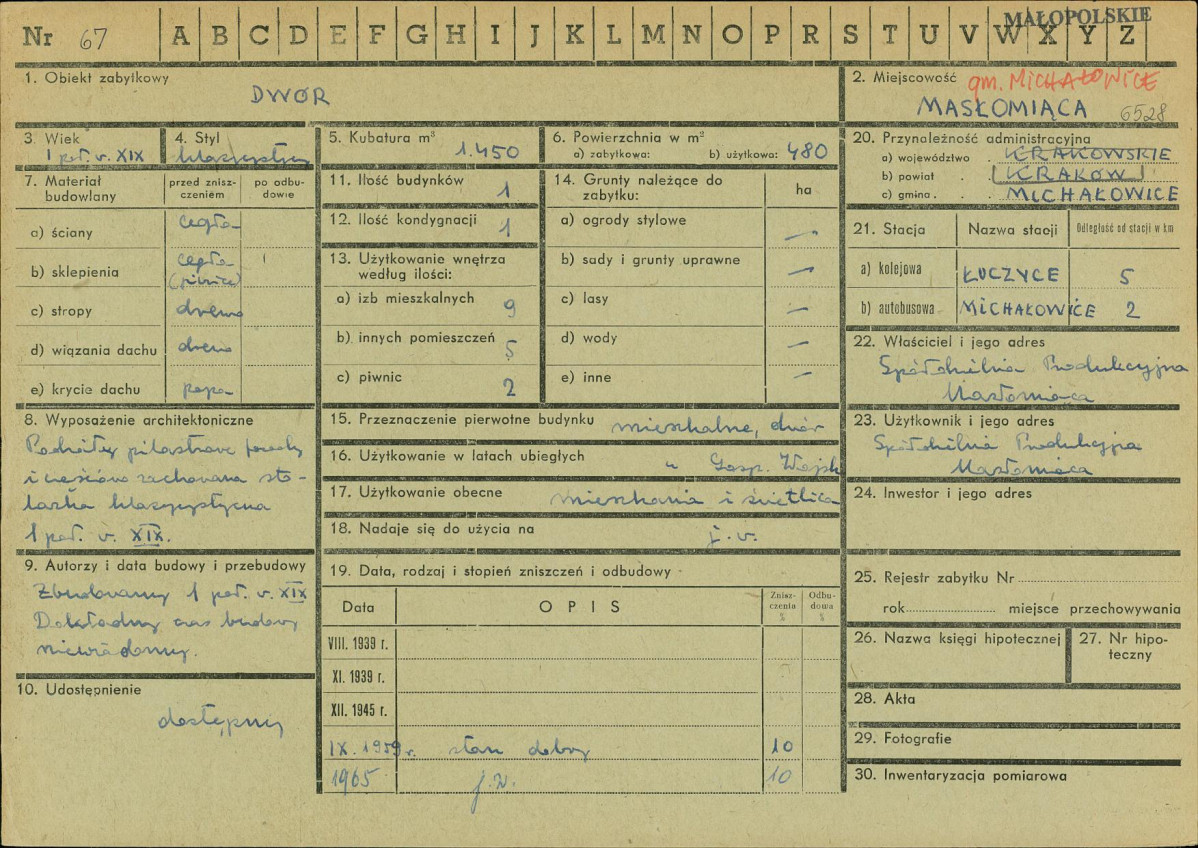 Nr 67 A B C D E F G H I J K L M N O P R S T U V W X Y Z
MAŁOPOLSKIE
1. Obiekt zabytkowy
DWÓR
2. Miejscowość gm. MICHAŁOWICE
MASŁOMIĄCA 6528
3. Wiek
1 poł. w. XIX
4. Styl
klasycystyczny
5. Kubatura m³
1.450
6. Powierzchnia w m²
a) zabytkowa: b) użytkowa: 480
7. Materiał budowlany
przed zniszczeniem
po odbudowie
a) ściany cegła
b) sklepienia cegła
(piwnice)
c) stropy drewno
d) wiązania dachu drewno
e) krycie dachu papa
8. Wyposażenie architektoniczne
Podziały pilastrowe fasady
i częściowo zachowana sto-
larka klasycystyczna
1 poł. w. XIX.
9. Autorzy i data budowy i przebudowy
Zbudowany 1 poł. w. XIX
Dokładny czas budowy
niewiadomy.
10. Udostępnienie
dostępny
11. Ilość budynków 1
12. Ilość kondygnacji 1
13. Użytkowanie wnętrza
według ilości:
a) izb mieszkalnych 9
b) innych pomieszczeń 5
c) piwnic 2
14. Grunty należące do
zabytku: ha
a) ogrody stylowe —
b) sady i grunty uprawne —
c) lasy —
d) wody —
e) inne —
15. Przeznaczenie pierwotne budynku mieszkalne, dwór
16. Użytkowanie w latach ubiegłych " Gosp. Wojsk
17. Użytkowanie obecne mieszkania i świetlica
18. Nadaje się do użycia na j. w.
19. Data, rodzaj i stopień zniszczeń i odbudowy
Data OPIS Zniszczenia % Odbudowa %
VIII. 1939 r.
XI. 1939 r.
XII. 1945 r.
IX. 1959 r. stan dobry 10
1965 j.w. 10
20. Przynależność administracyjna
a) województwo . KRAKOWSKIE
b) powiat . KRAKÓW
c) gmina . . MICHAŁOWICE
21. Stacja Nazwa stacji Odległość od stacji w km
a) kolejowa ŁUCZYCE 5
b) autobusowa MICHAŁOWICE 2
22. Właściciel i jego adres
Spółdzielnia Produkcyjna
Masłomiąca
23. Użytkownik i jego adres
Spółdzielnia Produkcyjna
Masłomiąca
24. Inwestor i jego adres
25. Rejestr zabytku Nr
rok miejsce przechowywania
26. Nazwa księgi hipotecznej
27. Nr hipoteczny
28. Akta
29. Fotografie
30. Inwentaryzacja pomiarowa